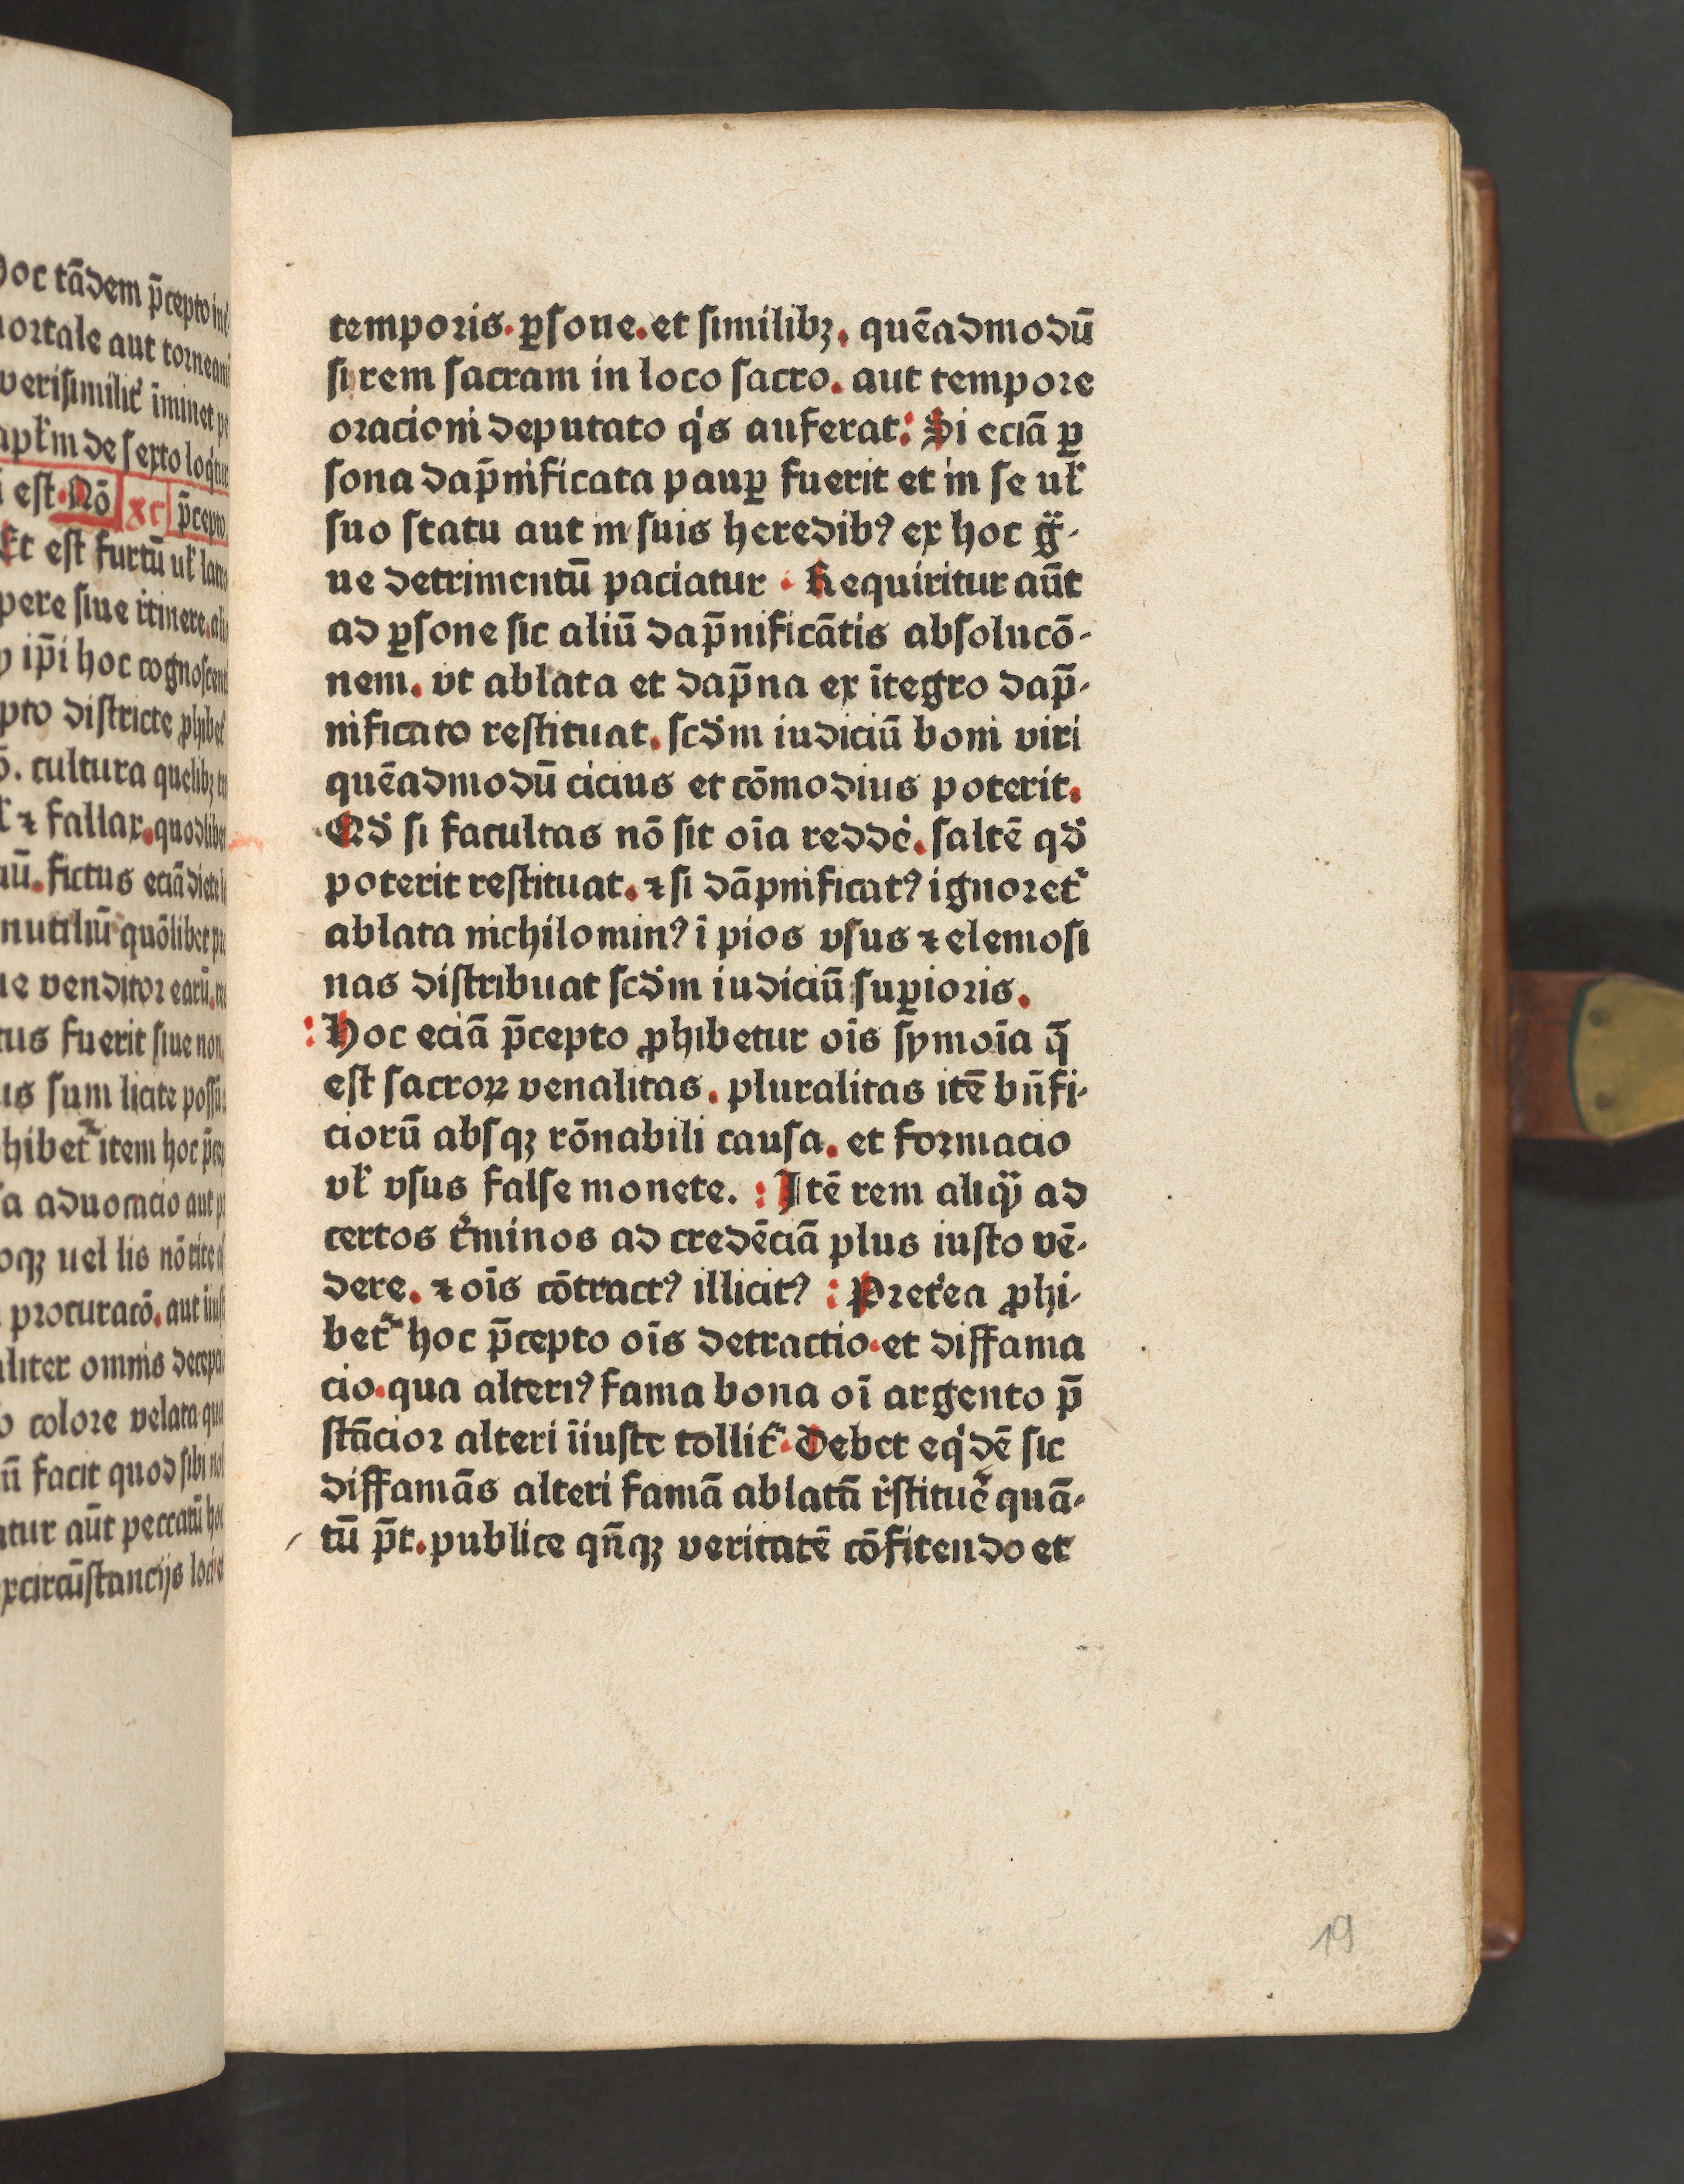 hoc tādem p̄cepto
mortale aut torneam
verisimilit᷑ īminet
de sexto loq̇tur
est. Nō xc p̄cepto
Et est furtū ul̛ latro
siue itinere.
ip̄i hoc cognoscen
districte ꝓhibet᷑
cultura
⁊ fallax. quodlibet
fictus eciā
quōlibet
venditor earū.
fuerit siue non.
sum licite
item hoc
aduocacio aut
uel lis nō rite
procuracō. aut
omnis
colore velata qua
facit quod sibi
aūt peccatū hoc
circūstancijs loci
temporis. ꝑsone. et similibꝫ. quēadmodū
si rem sacram in loco sacro. aut tempore
oracioni deputato q̇s auferat: Si eciā ꝑ
sona dap̄nificata pauꝑ fuerit et in se ul̛
suo statu aut in suis heredibꝰ ex hoc gͣ-
ue detrimentū paciatur. Requiritur aūt
ad ꝑsone sic aliū dap̄nificātis absolucō-
nem. vt ablata et dap̄na ex ītegro dap̄-
nificato restituat. scd̛m iudiciū boni viri
quēadmodū cicius et cōmodius poterit.
Qd̛ si facultas nō sit oīa redde᷑. saltē qd̛
poterit restituat. ⁊ si dāpnificatꝰ ignoret᷑
ablata nichilominꝰ ī pios vsus ⁊ elemosi
nas distribuat scd̛m iudiciū suꝑioris.
: Hoc eciā p̄cepto ꝓhibetur oīs sȳmoīa q̄
est sacroꝝ venalitas. pluralitas itē bn̄fi-
ciorū absqꝫ rōnabili causa. et formacio
vl̛ vsus false monete. : Itē rem aliqͣ ad
certos t᷑minos ad credēciā plus iusto vē-
dere. ⁊ oīs cōtractꝰ illicitꝰ : Pret᷑ea ꝓhi-
bet᷑ hoc p̄cepto oīs detractio. et diffama
cio. qua alteriꝰ fama bona oī argento p̄
stācior alteri īiuste tollit᷑. Debet eq̇dē sic
diffamās alteri famā ablatā r̛stitue᷑ quā-
tū p̄t. publice qn̄qꝫ veritatē cōfitendo et
19